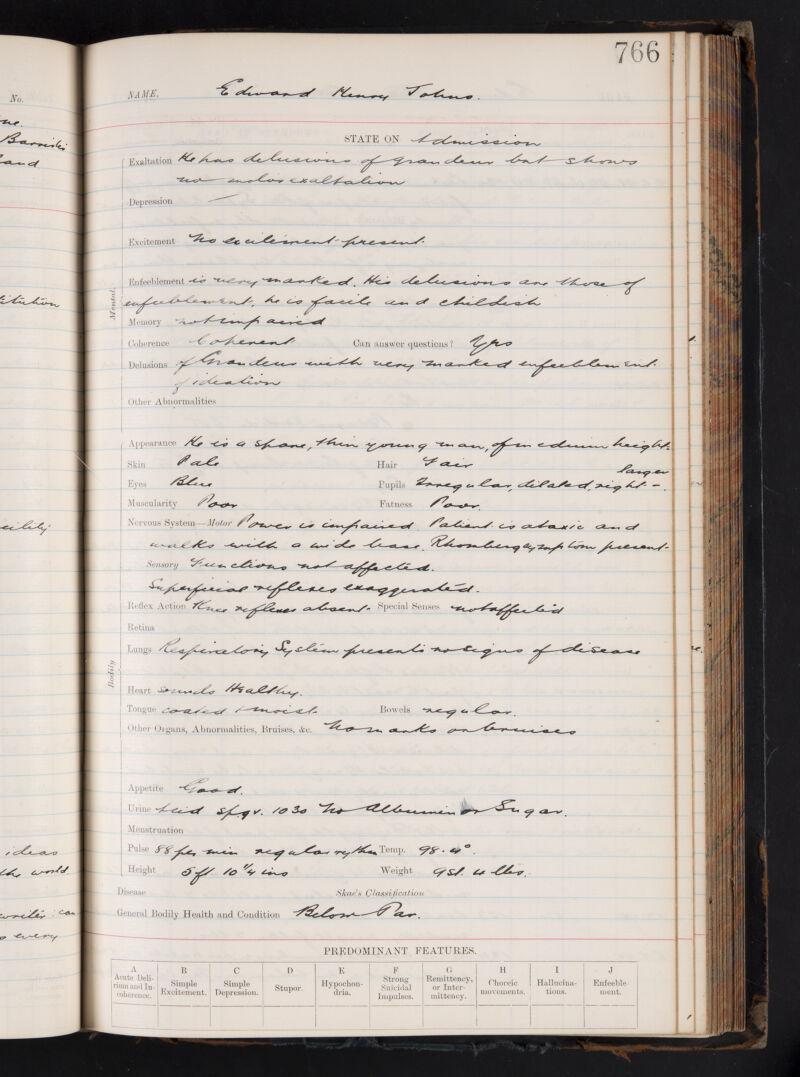 No.
766
NAME. Edward Henry Johns.
STATE ON Admission
Exaltation He has delusions of grandeur but shows
no exaltation
Depression —
Excitement No excitement present.
Enfeeblement is very marked. His delusions are those of
enfeeblement, he is facile and childish
Memory not impaired
Coherence Coherent Can answer questions? Yes
Delusions of Grandeur with very marked enfeeblement
of ideation
Other Abnormalities
Mental.
Appearance He is a spare, thin young man, of medium height.
Skin Pale Hair Fair
larger
Eyes Blue Pupils Irregular, dilated, right -.
Muscularity Poor Fatness Poor.
Nervous System—Motor Power is impaired Patient is ataxic and
walks with a wide base. Rhomberg symptom present.
Sensory Functions not affected.
Superficial reflexes exaggerated.
Reflex Action Knee reflexes absent. Special Senses not affected
Retina
Lungs Respiratory System presents no signs of disease
Bodily
Heart sounds Healthy.
Tongue coated & moist. Bowels regular.
Other Organs, Abnormalities, Bruises, &c. No marks or bruises
Appetite Good.
Urine Acid spgr. 1030 No Albumin or Sugar.
Menstruation
Pulse 88 per min regular rythm Temp. 98.4°.
Height 5 ft 10 1/4 ins Weight 9st. 4 lbs.
Disease Skae's Classification
General Bodily Health and Condition Below Par.
PREDOMINANT FEATURES.
A B C D E F G H I J
Acute Delirium and Incoherence. Simple Excitement. Simple Depression. Stupor. Hypochondria. Strong Suicidal Impulses. Remittency, or Intermittency. Choreic movements. Hallucinations. Enfeeblement.